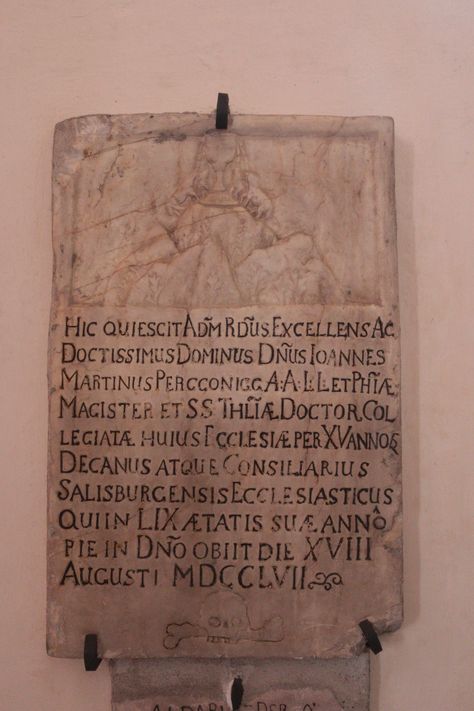 HIC QUIESCIT ADM̃ RD̃US EXCELLENS AC
DOCTISSIMUS DOMINUS DÑUS IOANNES
MARTINUS PERCCONIGG A·A·L·L ET PHĨÆ
MAGISTER ET S S THL̃IÆ DOCTOR COL
LEGIATÆ HUIUS ECCLESIÆ PER XV ANNOS
DECANUS ATQUE CONSILIARIUS
SALISBURGENSIS ECCLESIASTICUS
QUI IN LIX ÆTATIS SUÆ ANNO
PIE IN DÑO OBIIT DIE XVIII
AUGUSTI MDCCLVII